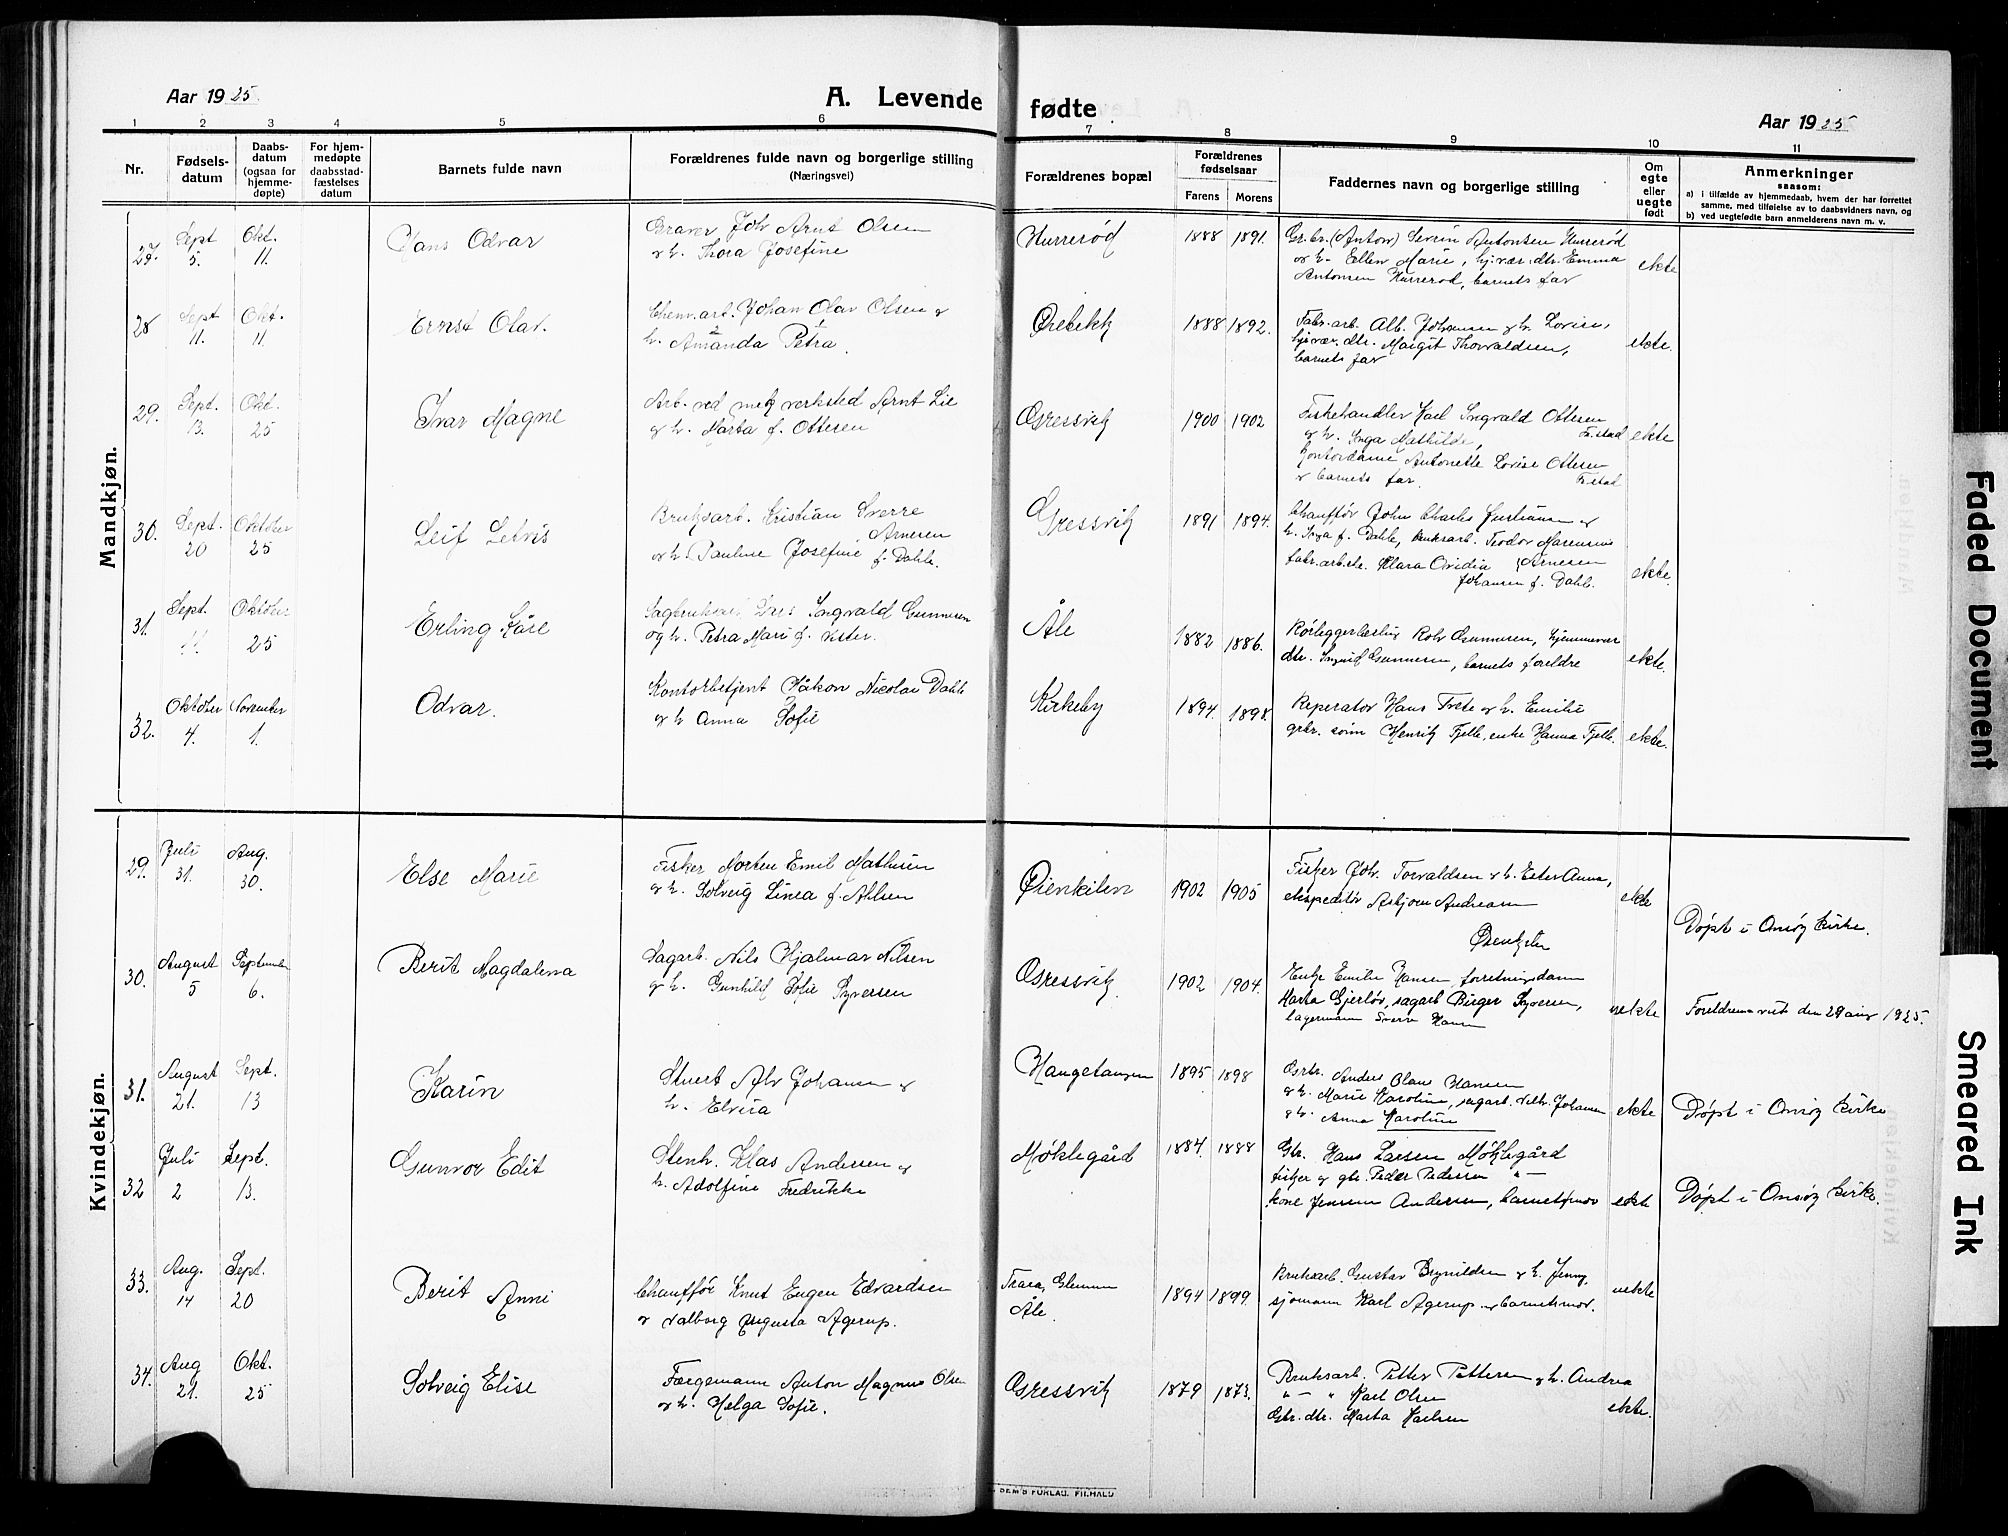 Aar 1925.
A. Levende fødte
Aar 1925
1 2 3 4 5 6 7 8 9 10 11
Nr.
Fødsels-
datum
Daabs-
datum
(ogsaa for
hjemme-
døpte)
For hjem-
medøpte
daabsstad-
fæstelses
datum
Barnets fulde navn
Forældrenes fulde navn og borgerlige stilling
(Næringsvei)
Forældrenes bopæl
Forældrenes
fødselsaar
Farens Morens
Faddernes navn og borgerlige stilling
Om
egte
eller
uegte
født
Anmerkninger
saasom:
a) i tilfælde av hjemmedaab, hvem der har forrettet
samme, med tilføielse av to daabsvidners navn, og
b) ved uegtefødte barn anmelderens navn m. v.
Mandkjøn.
27. Sept 5. Okt. 11. Hans Odvar
Graver Joh Arnt Olsen
og h. Thora Josefine
Hurrerød 1888 1891.
Gr.br. (Anton) Severin Antonsen Hurrerød
og h. Ellen Marie, hj.vær. dtr. Emma
Antonsen Hurrerød, barnets far
ekte
28 Sept 11. Okt. 11. Ernst Olav.
Chem. arb. Johan Olav Olsen og
h. Amanda Petra.
Ørebekk 1888 1892.
Fabr. arb. Alb. Johansen og h. Lovise,
hj.vær. dtr. Margit Thorvaldsen,
barnets far
ekte.
29. Sept. 13. Okt. 25 Ivar Magne
Arb. ved mek verksted Arnt Lie
og h. Marta f. Ottesen
Gressvik 1900 1902
Fiskehandler Karl Ingvald Ottesen
og h. Inga Mathilde, F.stad
Kontordame Antonette Lovise Ottesen
og barnets far. F.stad
ekte
30. Sept. 20 Oktober 25 Leif
Bruksarb. Kristian Sverre
Arnesen
og h. Pauline Josefine f. Dahle.
Gressvik 1891 1894.
Chauffør John Charles
h. Inga f. Dahle, bruksarb. Teodor
fabr. arb.ske. Klara Ovidia Arnesen
Johansen f. Dahl.
ekte.
31. Sept. 11. Oktober 25 Erling Kåre
Ingvald Gunnersen
og h. Petra Marie f.
Åle 1882 1886.
Rørleggerlærling Rolv Gunnersen, hjemmevær
dtr. Ingrid Gunnersen, barnets foreldre
ekte.
32. Oktober 4. November 1. Odvar.
Kontorbetjent Håkon Nicolai Dahle
og h Anna Sofie
Kirkeby 1894. 1898.
Reperatør Hans Frete og h. Emilie
grbr. sønn Henrik Fjelle, enke Hanna Fjelle.
ekte.
Kvindekjøn.
29. Juli 31. Aug. 30. Else Marie
Fisker Morten Emil Mathisen
og h. Solveig Linea f. Ahlsen
Øienkilen 1902 1905
Fisker Joh. Torvaldsen og h. Ester Anna,
ekspeditør Asbjørn Andreasen
ekte
Døpt i Onsøy kirke.
30. August 5 September 6. Berit Magdalena
Sagarb. Nils Hjalmar Nilsen
og h. Gunhild Sofie Syversen
Gressvik 1902 1904.
Enke Emilie Hansen, forretningsdame
Marta Gjerløv, sagarb Birger Syversen,
lagermann Sverre Hansen
uekte
Foreldrene viet den 29 aug 1925.
31. August 21. Sept. 13 Karin
Stuert Alv Johansen og
h. Elvira
Hangetangen 1895 1898
Gbr. Anders Olaus Hansen
og h. Marie Karoline, sagarb. Vilh. Johansen
og h. Anna Karoline
ekte
Døpt i Onsøy kirke
32 Juli 2 Sept. 13. Gunvor Edit
Stenh. Klas Andersen og
h. Adolfine Fredrikke
Møklegård 1884. 1888
Gbr. Hans Larsen Møklegård
fisker og gbr. Peder Pedersen " —
kone Jensine Andersen, barnets mor
ekte
Døpt i Onsøy kirke.
33. Aug. 14 Sept. 20 Berit Anni
Chauffør Knut Eugen Edvardsen
og Valborg Augusta Agerup.
Trara, Glemmen
Åle. 1894 1899.
Bruksarb. Gustav Brynildsen og h. Jenny,
sjømann Karl Agerup og barnets mor.
uekte
34. Aug 21. Okt. 25 Solveig Elise
Færgemann Anton Magnus Olsen
og h. Helga Sofie.
Gressvik 1879 1873.
Bruksarb. Petter Pettersen og h. Andrea
" — " Karl Olsen
Gbr. dtr. Marta Karlsen
ekte.
Faded Document
Smeared Ink